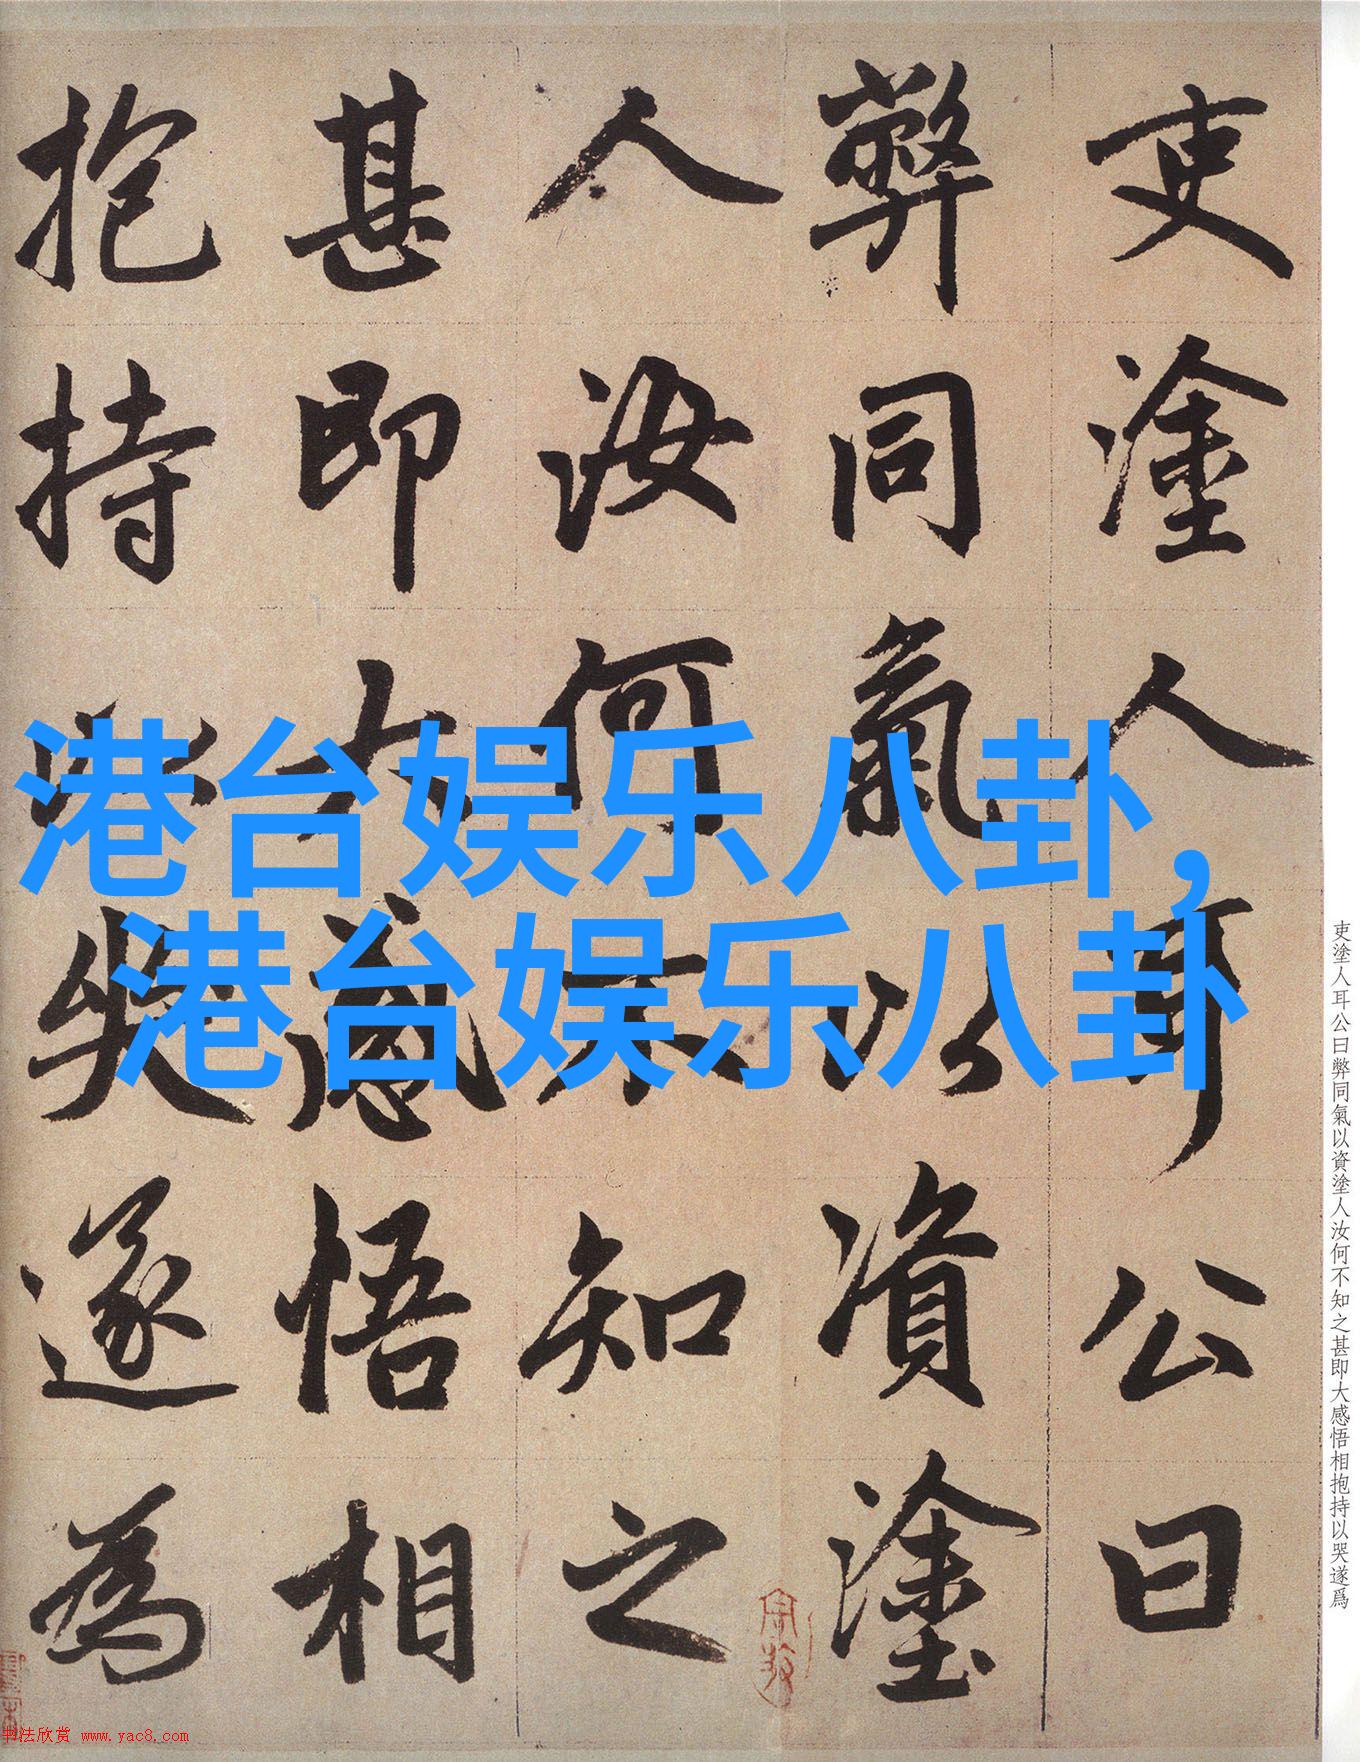 港台娱乐八卦，
港台娱乐八卦
吏塗人耳公曰
弊同氣以資塗
人汝何不知之
甚即大感悟相
抱持以哭遂為
吏塗人耳公曰弊同氣以資塗人汝何不知之甚即大感悟相抱持以哭遂爲
书法欣赏 www.yac8.com